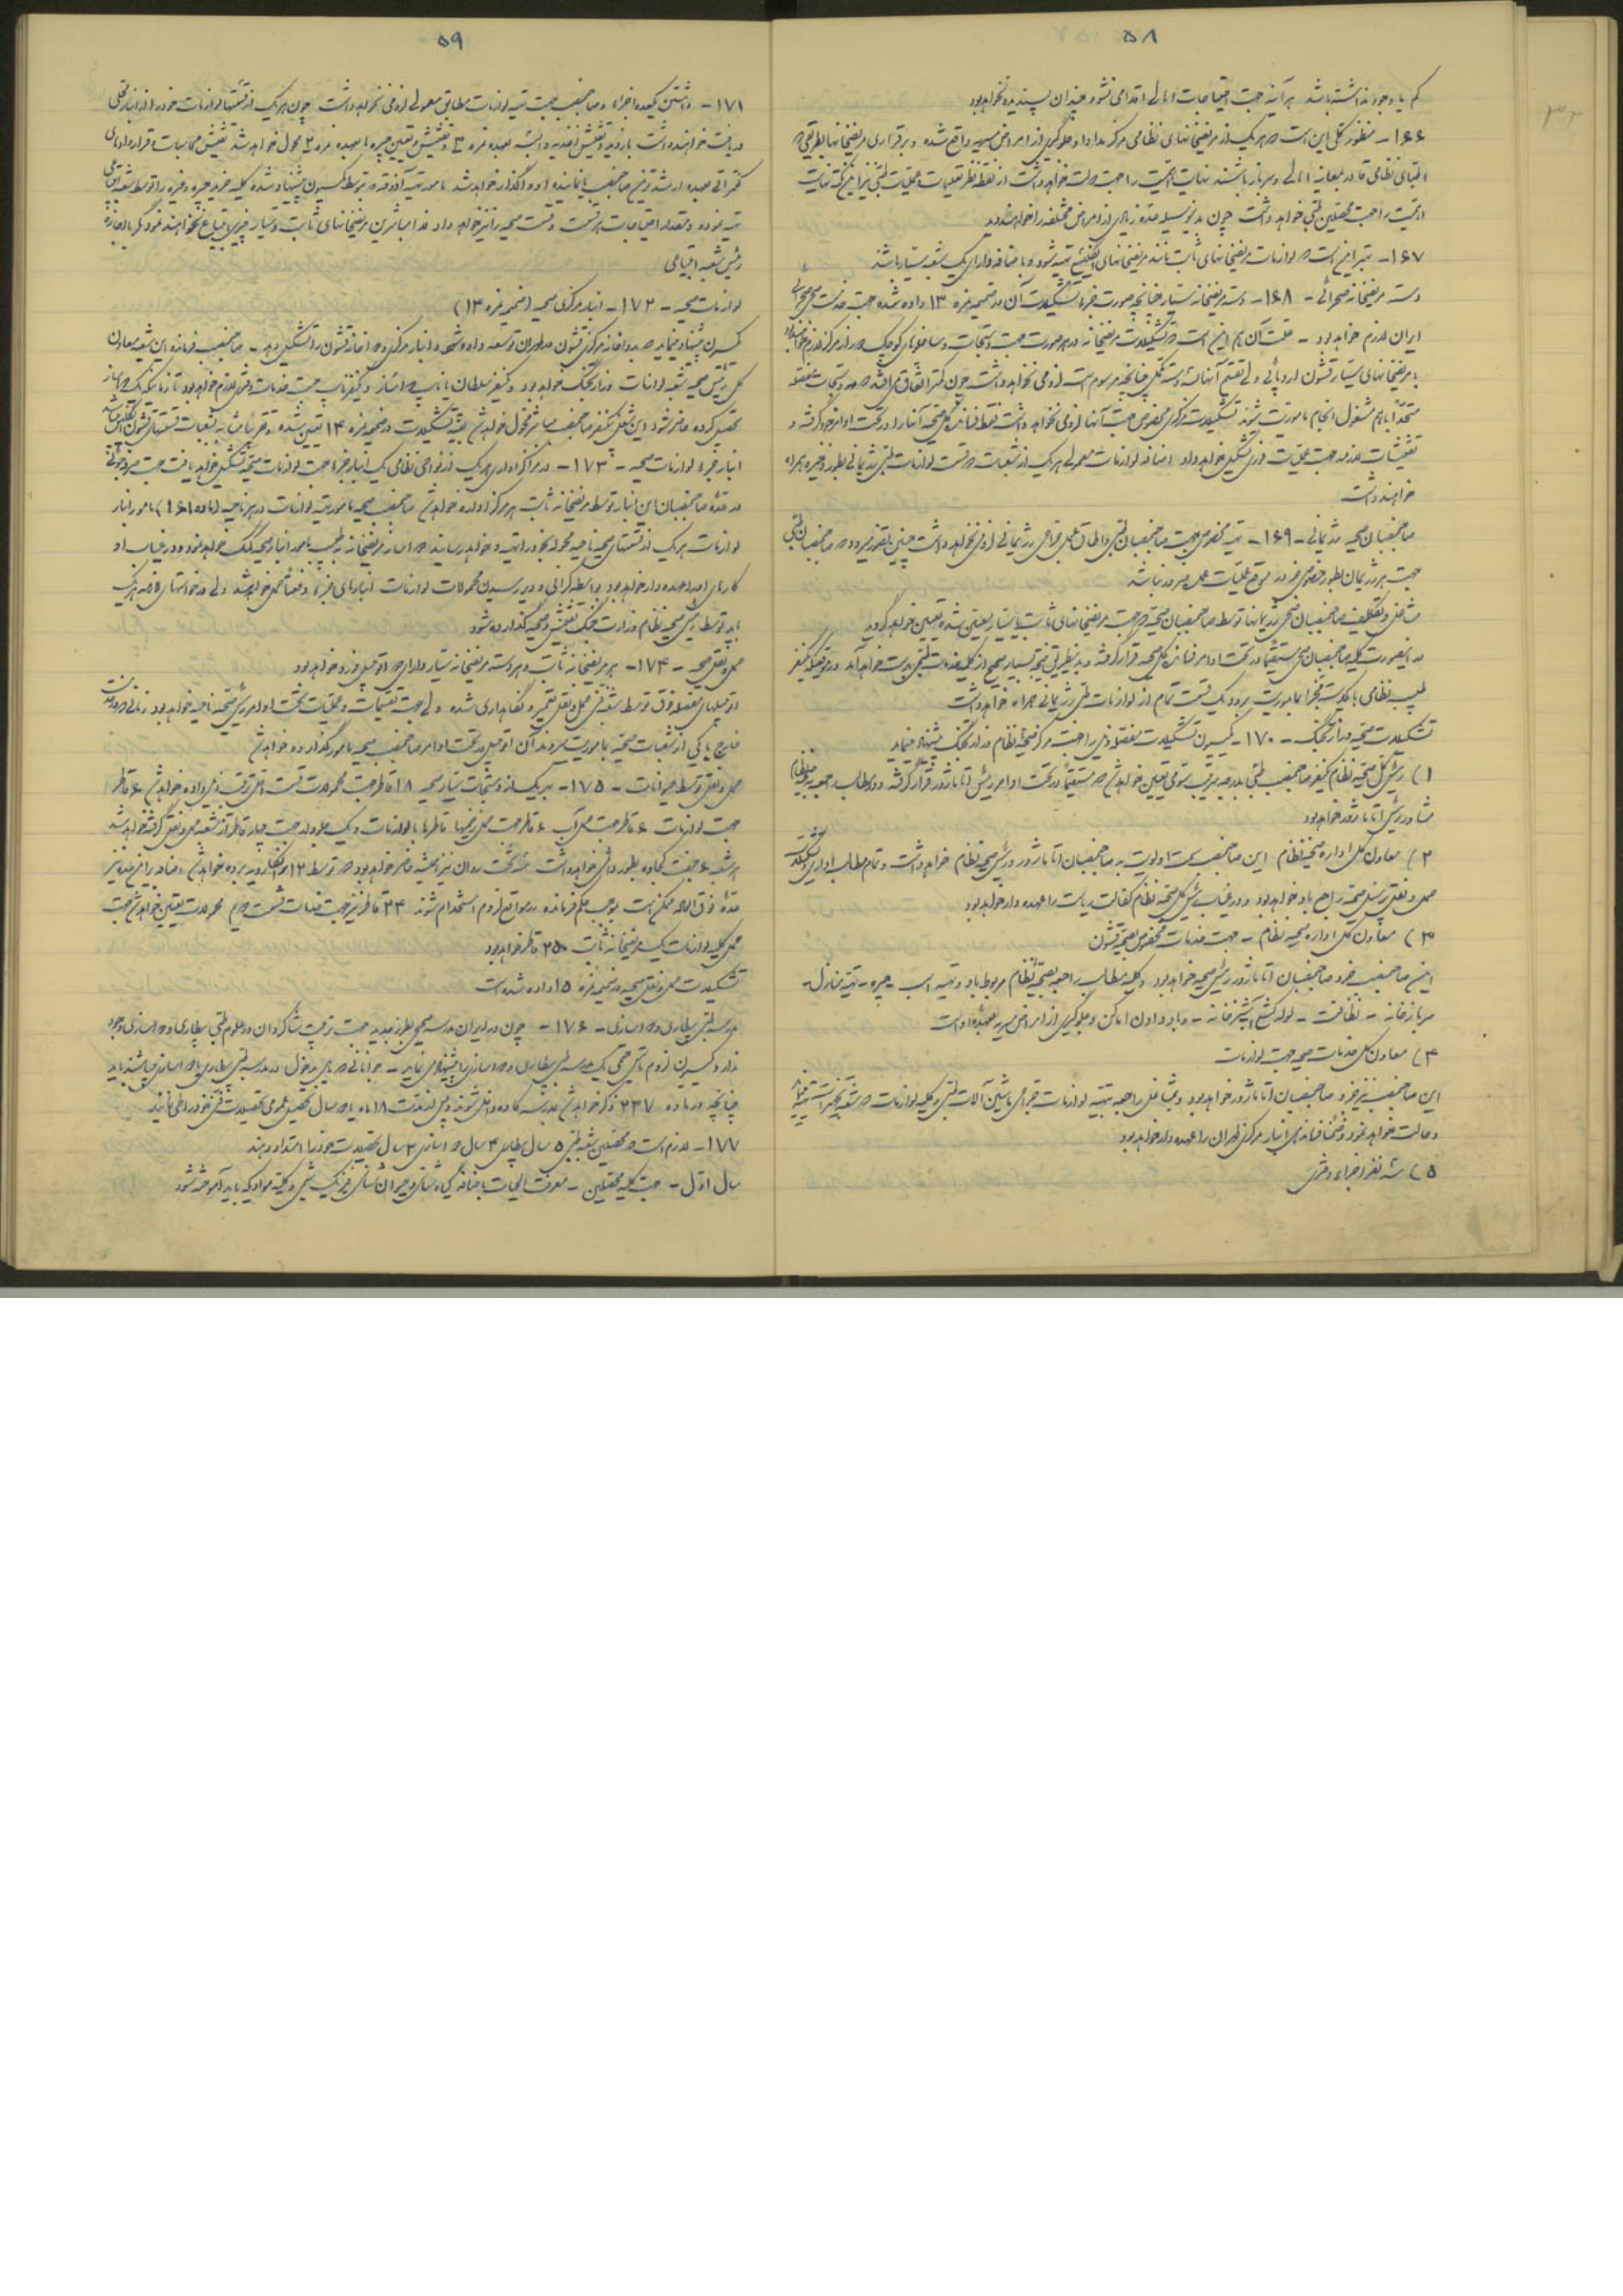 ۵۸
کم یا وجود نداشته باشد هرآینه جهت احتیاجات اهالی اقدامی نشود چندان پسندیده نخواهد بود
۱۶۶ - منظور کلی این است که هر یک از مریضخانهای نظامی مرکز مداوا و جلوگیری از امراض مسریه واقع شده و برقراری مریضخانها بطریقی که
اطبای نظامی قادر بمعاینه اهالی و سرباز باشند نهایت اهمیت را جهت دولت خواهد داشت از نقطه نظر تعلیمات و عملیات طبی نیز این نکته نهایت
اهمیت را جهت محصلین طبی خواهد داشت چون بدینوسیله عده زیادی از امراض مختلفه را خواهند دید
۱۶۷ - بهتر این است که لوازمات مریضخانهای ثابت مانند مریضخانهای تهیه شود و باضافه دارای یک شعبه سیار باشند
دسته مریضخانه صحرائی - ۱۶۸ - دسته مریضخانه سیار چنانچه صورت جزء تشکیلات آن در ضمیمه نمره ۱۳ داده شده جهت خدمت
ایران لازم خواهد بود - علت آن هم این است که تشکیلات مریضخانه در هر صورت جهت دستجات و ساخلوهای کوچک دور از مرکز لازم
با مریضخانهای سیار قشون اروپائی ولی تقسیم آنها به دسته چنانچه مرسوم است لزومی نخواهد داشت چون کمتر اتفاق می‌افتد که دستجات
متحداً باهم مشغول انجام مأموریت شوند تشکیلات مرکزی مخصوص جهت آنها لزومی نخواهد داشت فقط صحیه آنها را در تحت اوامر خود گرفته و
تفتیشات لازمه جهت عملیات فوری تشکیل خواهد داد اضافه لوازمات معمولی هر یک از شعبات دو قسمت لوازمات طبی رژیمانی بطور ذخیره همراه
خواهند داشت
صاحبمنصبان صحیه رژیمانی - ۱۶۹ - تهیه مخصوص جهت صاحبمنصبان طبی و اطاق عمل جراحی رژیمانی لزومی نخواهد داشت چنین تصور میرود که صاحبمنصبان طبی
جهت هر رژیمان بطور خصوصی خود در موقع عملیات عمده مورد نباشد
مشاغل و تکلیف صاحبمنصبان صحی رژیمانها توسط صاحبمنصبان صحیه که جهت مریضخانهای ثابت یا سیار معین شده تعیین خواهد گردید
در اینصورت کلیه صاحبمنصبان صحی مستقیماً در تحت اوامر صحیه قرار گرفته و بدینطریق نتیجه بسیار صحیح از کلیه خدمات طبی بدست خواهد آمد در موقعیکه یکنفر
طبیب نظامی با یکدسته مجزا بمأموریت برود یک قسمت تمام از لوازمات طبی رژیمانی همراه خواهد داشت
تشکیلات صحیه وزارت جنگ - ۱۷۰ - کمیسیون تشکیلات مفصله ذیل را جهت مرکز صحیه نظام وزارت جنگ پیشنهاد مینماید
۱) رئیس کل صحیه نظام یکنفر صاحبمنصب طبی بدرجه سرتیپ سومی تعیین خواهد شد که مستقیماً در تحت اوامر رئیس اتاماژور قرار گرفته و در مطالب راجعه به
مشاور رئیس اتاماژور خواهد بود
۲) معاون کل اداره صحیه نظام این صاحبمنصب سمت اولویت به صاحبمنصبان اتاماژور و رئیس صحیه نظام خواهد داشت و تمام مطالب اداری تشکیلات
حمل و نقل پرسنل صحیه راجع باو خواهد بود و در غیاب رئیس کل صحیه نظام کفالت ریاست را عهده دار خواهد بود
۳) معاون کل اداره صحیه نظام - جهت خدمات مخصوص بصحیه قشون
این صاحبمنصب جزو صاحبمنصبان اتاماژور و رئیس صحیه خواهد بود و کلیه مطالب راجعه بصحیه نظام مربوط باو و تهیه اسب - جیره - تهیه منازل -
سربازخانه - نظافت - لوله کشی آشپزخانه - و باد دادن اماکن و جلوگیری از امراض مسریه بعهده او است
۴) معاون کل خدمات صحیه جهت لوازمات
این صاحبمنصب نیز جزو صاحبمنصبان اتاماژور خواهد بود و مشاغل راجعه بتهیه لوازمات جراحی ماشین آلات طبی و کلیه لوازمات
دخالت خواهد نمود و ضمناً فرماندهی انبار مرکزی طهران را عهده دار خواهد بود
۵) سه نفر اجزاء دفتری
۵۹
۱۷۱ - داشتن یکعده اجزاء و صاحبمنصب جهت تهیه لوازمات مطابق معمولی لزومی نخواهد داشت چون هر یک از قسمتها لوازمات خود را از انبار محلی
دریافت خواهند داشت بازدید و تفتیش اغذیه و البسه بعهده نمره ۳ و تفتیش و تعیین جیره ها بعهده نمره ۲ محول خواهد شد تفتیش محاسبات و قراردادهای
کنتراتی بعهده ارشدترین صاحبمنصب یا نماینده او واگذار خواهد شد مأمور تهیه آذوقه که توسط کمیسیون پیشنهاد شده کلیه خرید جیره و غیره را توسط شعبه
تهیه نموده و مقدار احتیاجات هر قسمت و قسمت صحیه را نیز خواهد داد لذا مباشرین مریضخانهای ثابت و سیار چیزی ابتیاع نخواهند نمود مگر با اجازه
رئیس شعبه ابتیاعی
لوازمات صحیه - ۱۷۲ - انبار مرکزی صحیه (ضمیمه نمره ۱۴)
کمیسیون پیشنهاد مینماید که دواخانه مرکزی قشون در طهران توسعه داده شود و انبار مرکزی دواخانه قشون را تشکیل دهد - صاحبمنصب فرمانده این شعبه معاون
کل رئیس صحیه شعبه لوازمات وزارت جنگ خواهد بود و یکنفر سلطان یا نایب دواساز و یکنفر نایب جهت خدمات دفتری لازم خواهد بود تا زمانیکه یک دواساز
تحصیل کرده حاضر شود این شغل بیکنفر صاحبمنصب مباشر محول خواهد شد بقیه تشکیلات در ضمیمه نمره ۱۴ تعیین شده و تقریباً مشابه به شعبات قسمتهای قشون
انبار جزء لوازمات صحیه - ۱۷۳ - در مراکز اداری هر یک از نواحی نظامی یک انبار جزء جهت لوازمات صحیه تشکیل خواهد یافت جهت صرفه جوئی
در عده صاحبمنصبان این انبار توسط مریضخانه ثابت هر مرکز اداره خواهد شد صاحبمنصب صحیه مأمور تهیه لوازمات در هر ناحیه (ماده ۱۶۱) مأمور انبار
لوازمات هر یک از قسمتهای صحیه ناحیه محوله بخود را تهیه و خواهد رسانید دواساز مریضخانه نیز بطبیب مأمور انبار صحیه کمک خواهد نمود و در غیاب او
کارهای او را عهده دار خواهد بود بواسطه گرانی و دیر رسیدن محمولات لوازمات انبارهای جزء دفعتاً حمل خواهد شد ولی درخواستهای لازمه هر یک
باید توسط رئیس صحیه نظام وزارت جنگ تفتیش و صحه گذارده شود
حمل و نقل صحیه - ۱۷۴ - هر مریضخانه ثابت و هر دسته مریضخانه سیار دارای دو اتومبیل فورد خواهد بود
اتومبیلهای مفصله فوق توسط شعبه فنی حمل و نقل تعمیر و نگاهداری شده ولی جهت تعلیمات و عملیات تحت اوامر رئیس صحیه ناحیه خواهد بود زمانیکه
خارج با یکی از شعبات صحیه بمأموریت میروند آن اتومبیل در تحت اوامر صاحبمنصب صحیه مأمور گذارده خواهد شد
حمل و نقل توسط حیوانات - ۱۷۵ - بهر یک از دستجات سیار صحیه ۱۸ قاطر جهت محمولات قسمت اصلی بترتیب ذیل داده خواهد شد ۶ قاطر
جهت لوازمات ۶ قاطر جهت حمل آب ۶ قاطر جهت حمل زخمیها قاطرها با لوازمات و یک جلودار جهت چهار قاطر از شعبه حمل و نقل گرفته خواهد شد
هر شعبه ۶ جفت کجاوه بطور دائمی خواهد داشت سه تخت روان نیز همیشه حاضر خواهد بود که توسط ۱۲ نفر برده خواهد شد
عده فوق العاده ممکن است بموجب حکم فرمانده در مواقع لزوم استخدام شوند ۲۴ قاطر نیز جهت خدمات قسمت دوم محمولات تعیین خواهد شد جهت
حمل کلیه لوازمات یک مریضخانه ثابت ۲۵۰ قاطر خواهد بود
تشکیلات حمل و نقل صحیه در ضمیمه نمره ۱۵ داده شده است
مدرسه طبی بیطاری و دواسازی - ۱۷۶ - چون در ایران مدرسه صحیح بطرز جدید جهت تربیت شاگردان در علوم طبی بیطاری و دواسازی وجود
ندارد کمیسیون لزوم تأسیس حتمی یک مدرسه طبی بیطاری و دواسازی را پیشنهاد مینماید - جوانانی که مایل بدخول در مدرسه طبی بیطاری یا دواسازی میباشند باید
چنانچه در ماده ۲۳۷ ذکر خواهد شد بمدرسه کاده داخل شوند و پس از مدت ۱۸ ماه یا دو سال تحصیل عمومی تحصیلات فنی خود را طی نمایند
۱۷۷ - لازم است که محصلین شعبه طبی ۵ سال بیطاری ۴ سال دواسازی ۳ سال تحصیلات خود را امتداد دهند
سال اول - جهت کلیه محصلین - معرفت الحیات باضافه گیاه شناسی و حیوان شناسی فیزیک شیمی و کلیه موادیکه باید آموخته شود